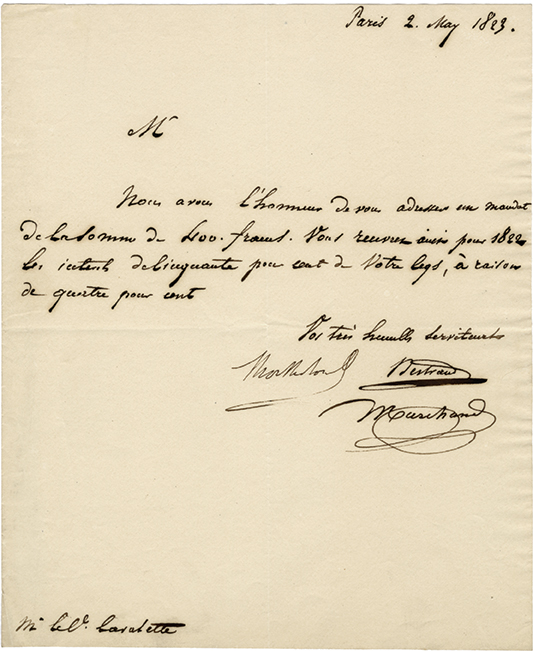 Paris 2. May 1823.
Mr
Nous avons l'honneur de vous adresser un mandat
de la somme de 400. francs. Vous recevrez ainsi pour 1822
les interets de cinquante pour cent de votre legs, à raison
de quatre pour cent
Vos très humbles serviteurs
Montholon Bertrand
Marchand
Mr le